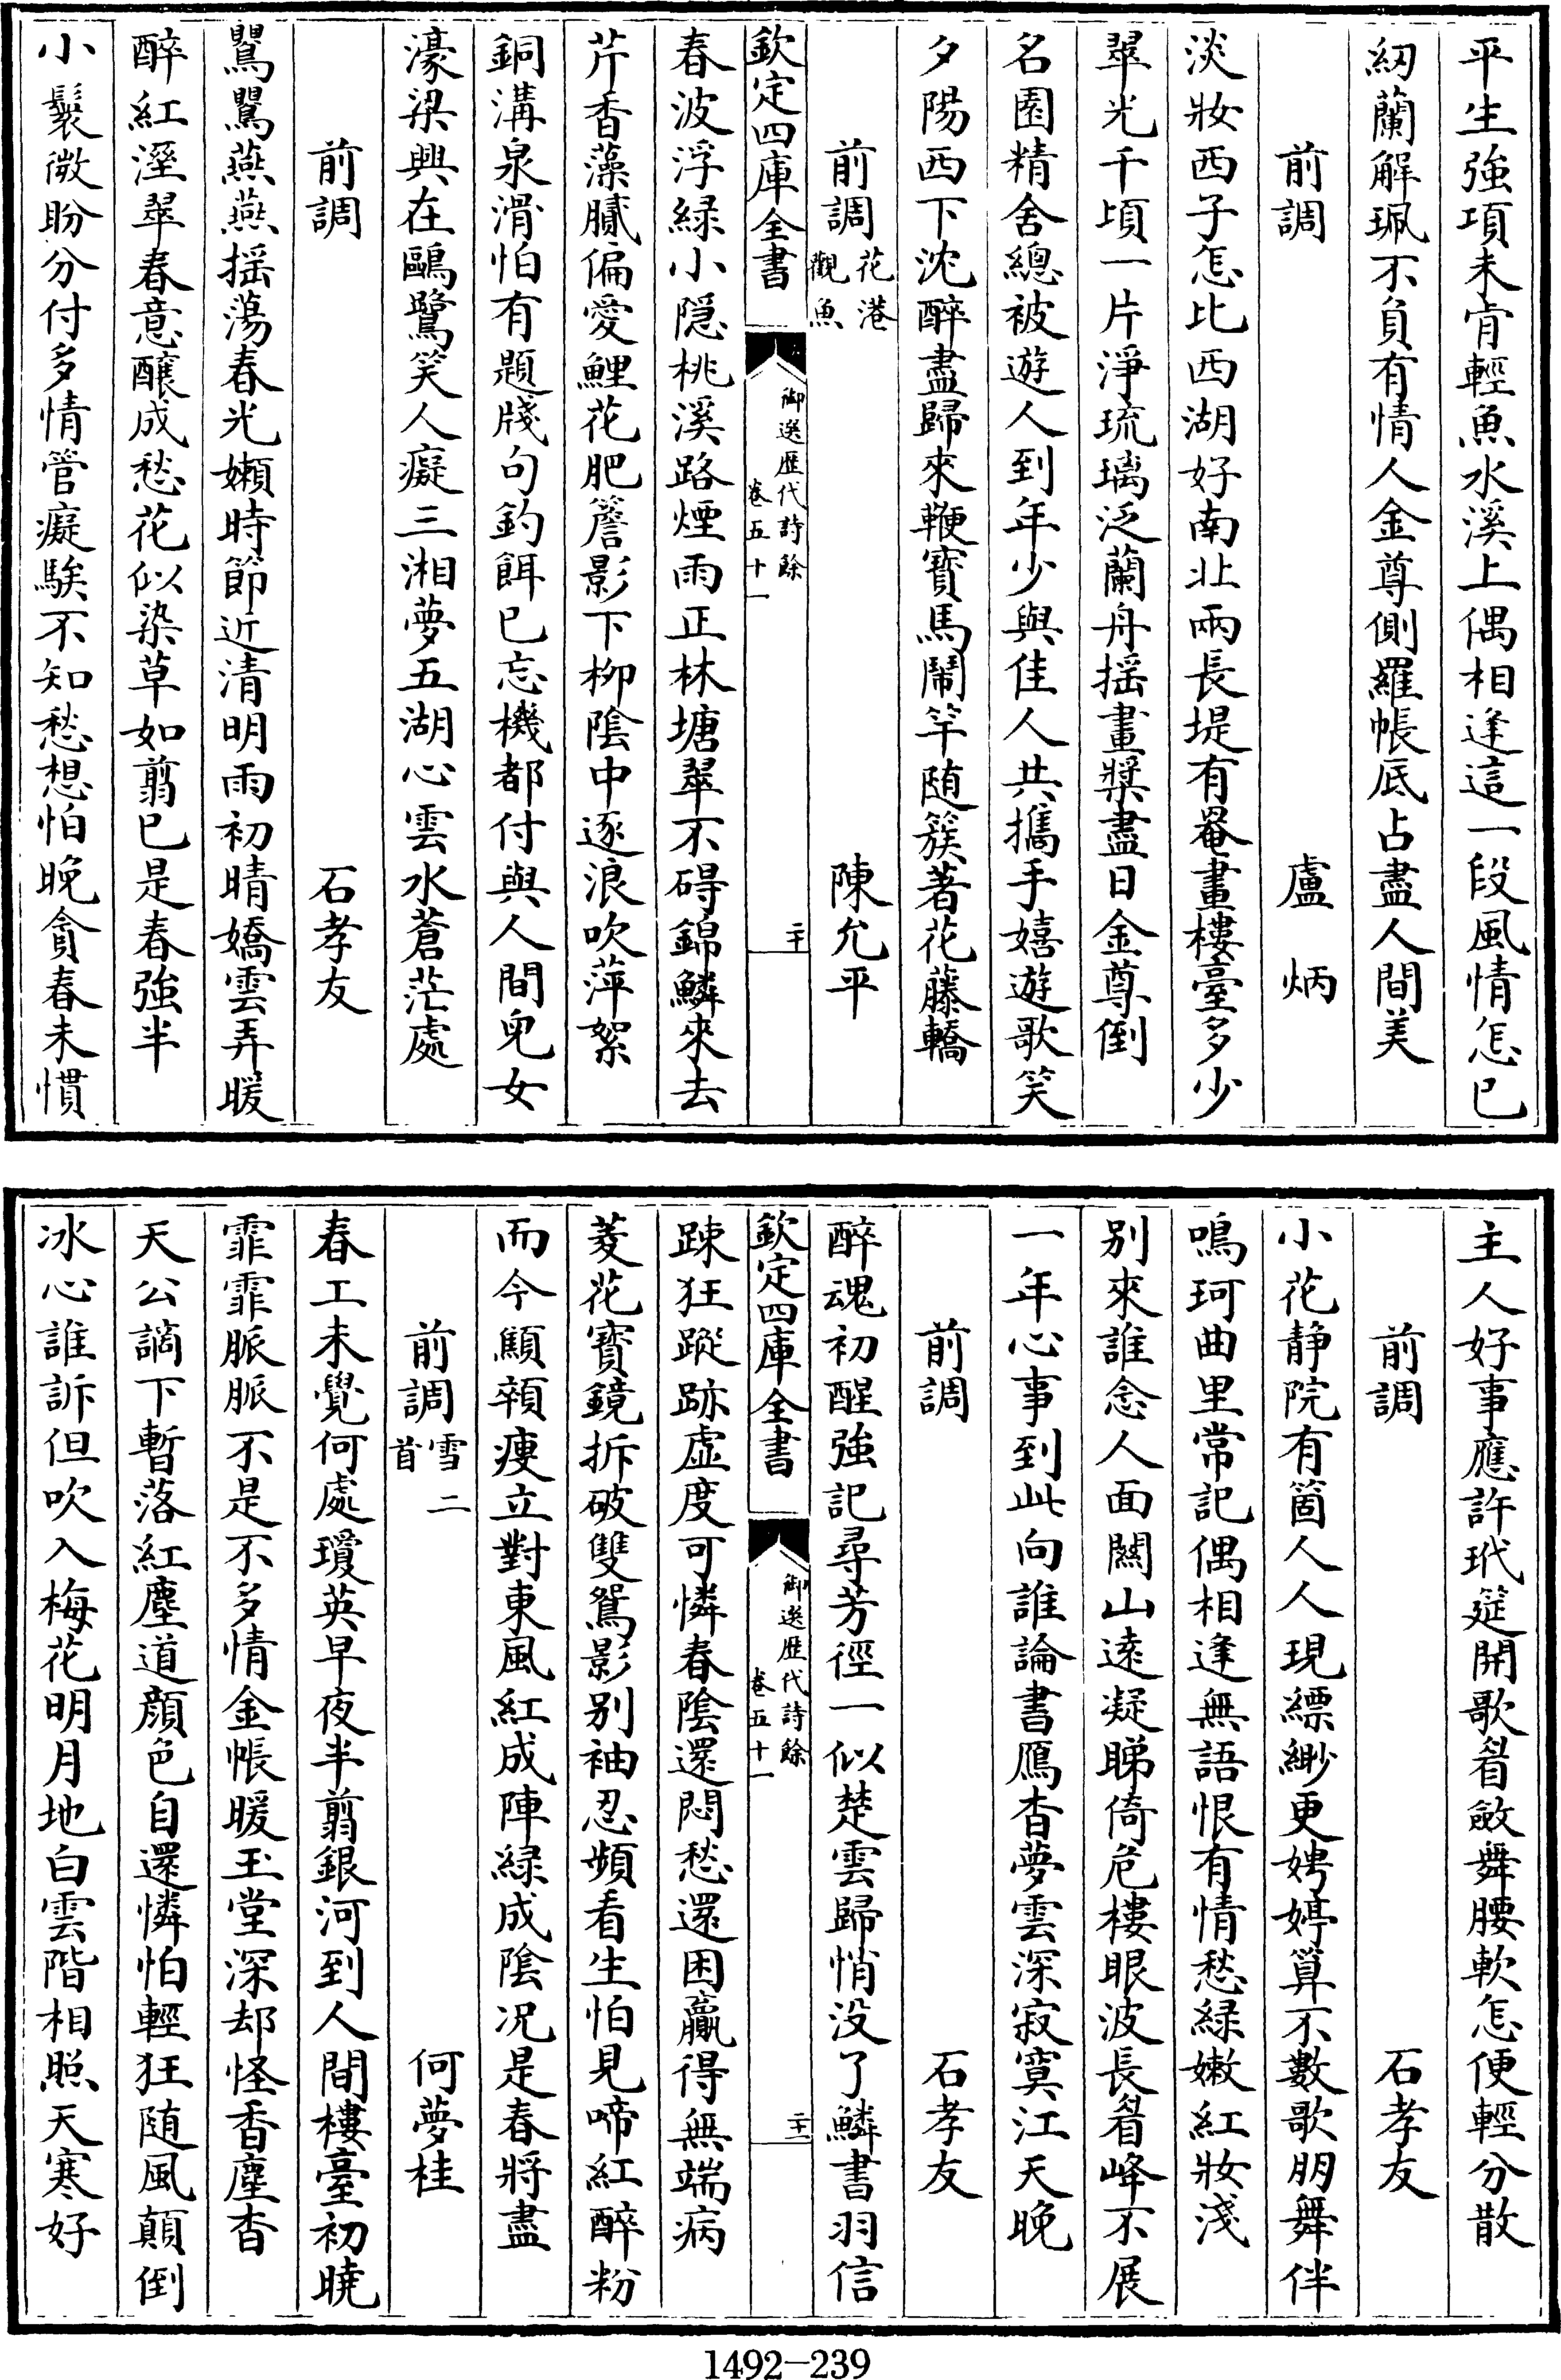 平生強項未肯輕魚水溪上偶相逢這一段風情怎已
紉蘭解珮不負有情人金尊側羅帳底占盡人間美
前調　盧炳
淡妝西子怎比西湖好南北兩長堤有罨畫樓臺多少
翠光千頃一片淨琉璃泛蘭舟揺畫槳盡日金尊倒
名園精舍總被遊人到年少與佳人共攜手嬉遊歌笑
夕陽西下沈醉盡歸來鞭寶馬鬧竿随簇著花藤轎
前調花港觀魚　陳允平
欽定四庫全書　御選歴代詩餘卷五十一　二十
春波浮緑小隠桃溪路煙雨正林塘翠不碍錦鱗來去
芹香藻膩偏愛鯉花肥簷影下柳陰中逐浪吹萍絮
銅溝泉滑怕有題牋句釣餌已忘機都付與人間兒女
濠梁興在鷗鷺笑人癡三湘夢五湖心雲水蒼茫處
前調　石孝友
鸎鸎燕燕揺蕩春光嬾時節近清明雨初晴嬌雲弄暖
醉紅溼翠春意釀成愁花似染草如翦已是春強半
小鬟微盼分付多情管癡騃不知愁想怕晚貪春未慣
主人好事應許玳筵開歌眉斂舞腰軟怎便輕分散
前調　石孝友
小花静院有箇人人現縹緲更娉婷算不數歌朋舞伴
鳴珂曲里常記偶相逢無語恨有情愁緑嫩紅妝淺
别來誰念人面闗山遠凝睇倚危樓眼波長眉峰不展
一年心事到此向誰論書鴈杳夢雲深寂寞江天晚
前調　石孝友
醉魂初醒強記尋芳徑一似楚雲歸悄没了鱗書羽信
欽定四庫全書　御選歴代詩餘卷五十一　二十一
踈狂蹤跡虚度可憐春陰還悶愁還困贏得無端病
菱花寶鏡拆破雙鴛影别袖忍頻看生怕見啼紅醉粉
而今顦顇瘦立對東風紅成陣緑成陰况是春將盡
前調雪二首　何夢桂
春工未覺何處瓊英早夜半翦銀河到人間樓臺初曉
霏霏脈脈不是不多情金帳暖玉堂深却怪香塵杳
天公謫下暫落紅塵道顔色自還憐怕輕狂随風顛倒
冰心誰訴但吹入梅花明月地白雲階相照天寒好
1492-239